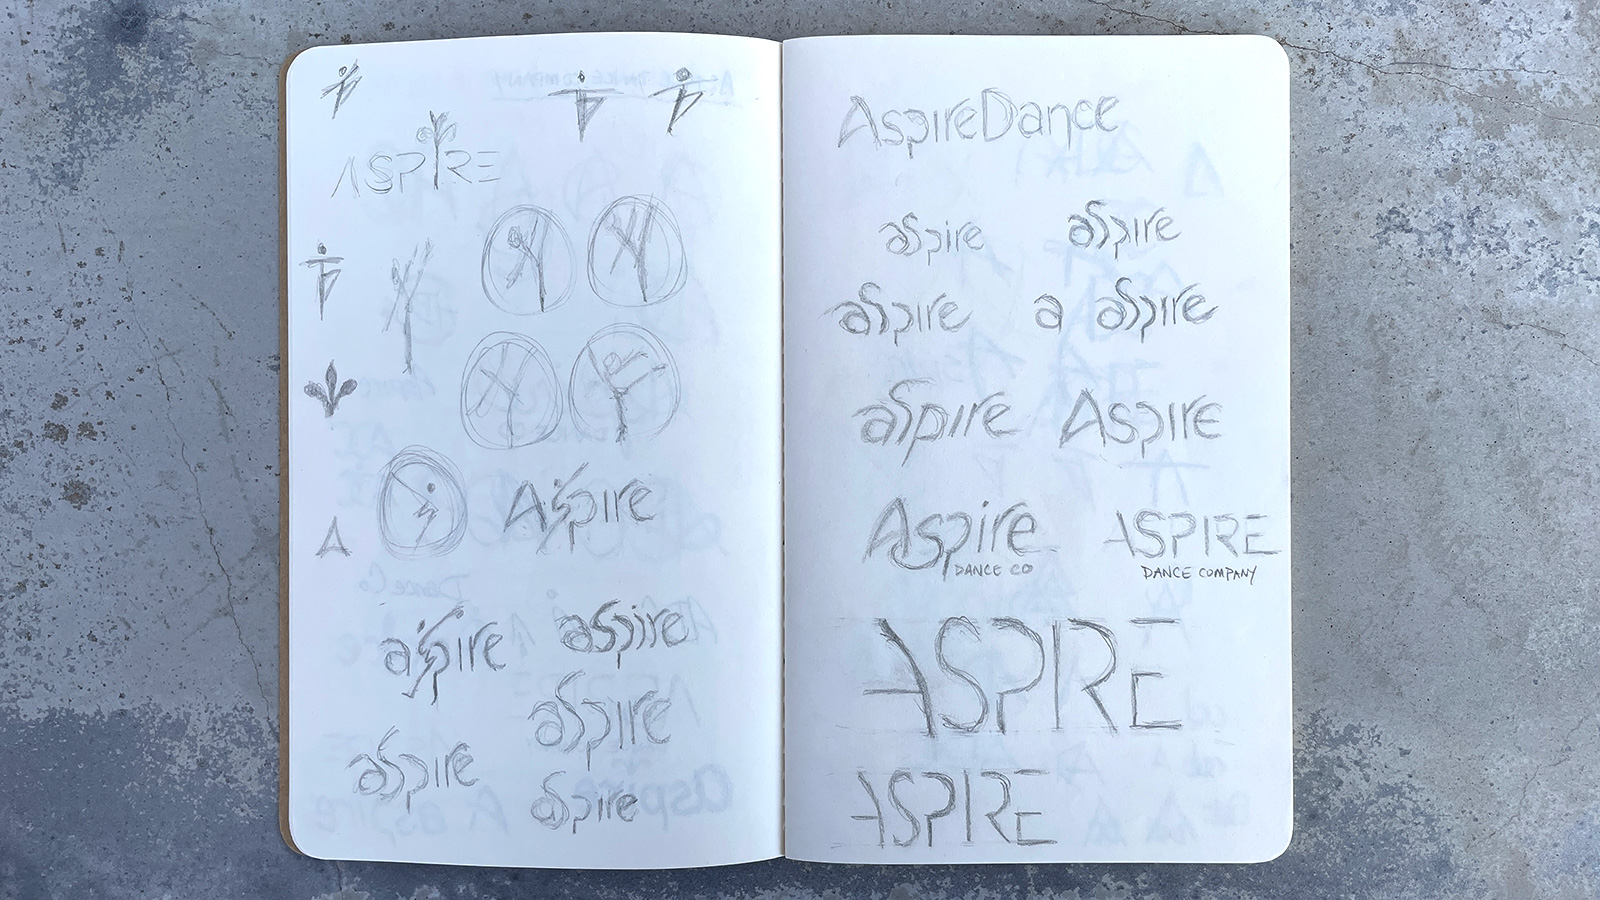 ASPIRE
A
Aspire
aspire
aspire
aspire
aspire
aspire
AspireDance
aspire
aspire
aspire
a
aspire
aspire
Aspire
Aspire
DANCE CO
ASPIRE
DANCE COMPANY
ASPIRE
ASPIRE